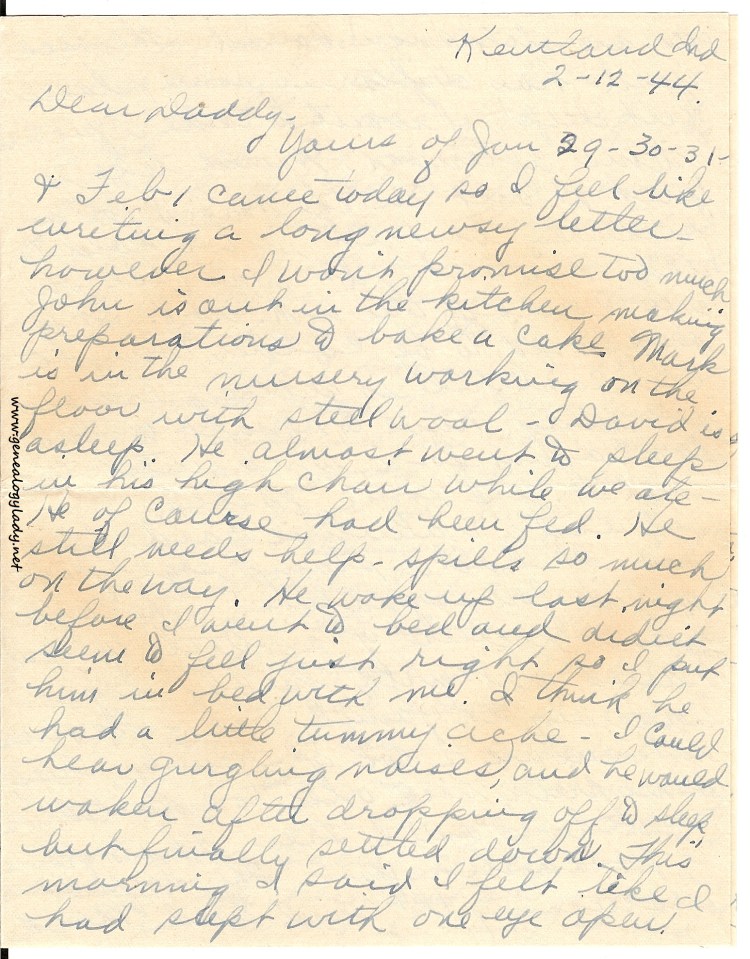 Kentland Ind
2-12-44.
Dear Daddy-
Yours of Jan 29-30-31-
& Feb 1 came today so I feel like
writing a long newsy letter-
however I won't promise too much
John is out in the kitchen making
preparations to bake a cake Mark
is in the nursery working on the
floor with steel wool - David is
asleep. He almost went to sleep
in his high chair while we ate-
He of course had been fed. He
still needs help - spills so much
on the way. He woke up last night
before I went to bed and didn't
seem to feel just right so I put
him in bed with me. I think he
had a little tummy ache - I could
hear gurgling noises, and he would
waken after dropping off to sleep,
but finally settled down. This
morning I said I felt like I
had slept with one eye open.
www.genealogylady.net